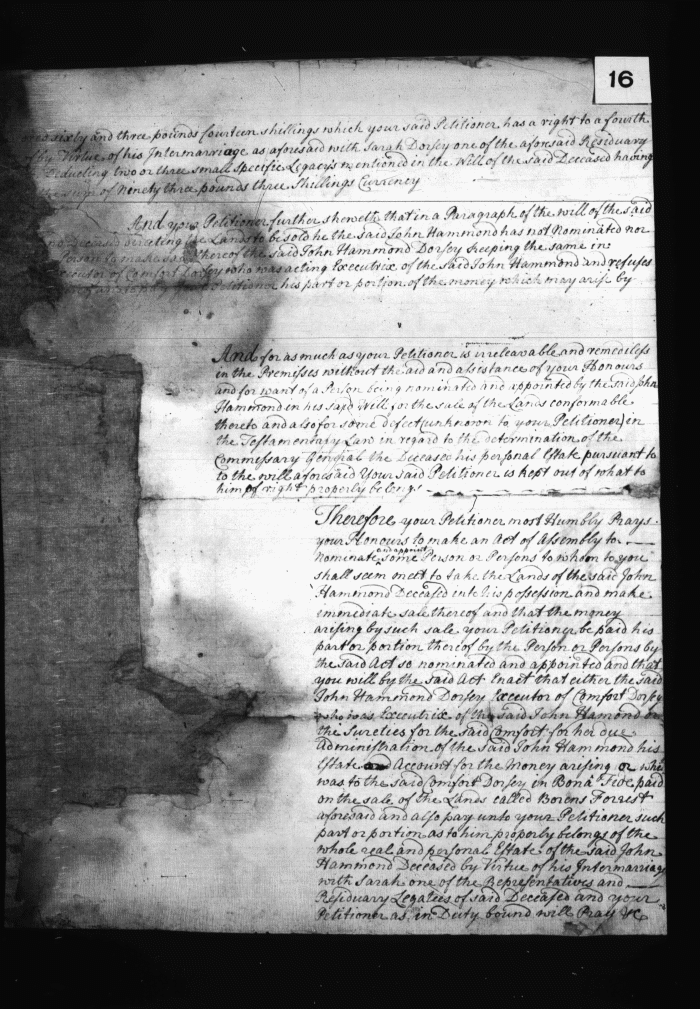 16
sixty and three pounds fourteen shillings which your said Petitioner has a right to a fourth
by Virtue of his Intermarriage as aforesaid with Sarah Dorsey one of the aforesaid Residuary
Deducting two or three small Specific Legacys mentioned in the Will of the said Deceased having
sum of Ninety three pounds three Shillings Currency
And your Petitioner further sheweth that in a Paragraph of the will of the said
Deceased directing the Lands to be sold he the said John Hammond has not Nominated nor
Person to make sale thereof the said John Hammond Dorsey keeping the same in
Executor of Comfort Dorsey who was acting Executrix of the said John Hammond and refuses
Petitioner his part or portion of the money which may arise by
And for as much as your Petitioner is irreleavable and remediless
in the Premisses without the aid and assistance of your Honours
and for want of a Person being nominated and appointed by the said John
Hammond in his said Will for the sale of the Lands conformable
thereto and also for some defect (unknown to your Petitioner) in
the Testamentary Law in regard to the determination of the
Commissary General the Deceased his personal Estate pursuant to
to the will aforesaid Your said Petitioner is kept out of what to
him of right properly belong.
Therefore your Petitioner most Humbly Prays
your Honours to make an Act of Assembly to
nominate and appoint some Person or Persons to whom to you
shall seem meet to take the Lands of the said John
Hammond Deceased into his possession and make
immediate sale thereof and that the money
arising by such sale your Petitioner be paid his
part or portion thereof by the Person or Persons by
the said Act so nominated and appointed and that
you will by the said Act Enact that either the said
John Hammond Dorsey Executor of Comfort Dorsey
who was Executrix of the said John Hamond or
the Sureties for the said Comfort for her due
Administration of the said John Hammond his
Estate and Account for the Money arising or who
was to the said Comfort Dorsey in Bona Fide paid
on the sale of the Lands called Borens Forrest
aforesaid and also pay unto your Petitioner such
part or portion as to him properly belongs of the
whole real and personal Estate of the said John
Hammond Deceased by Virtue of his Intermarriage
with Sarah one of the Representatives and
Residuary Legatees of said Deceased and your
Petitioner as in Duty bound will Pray &c